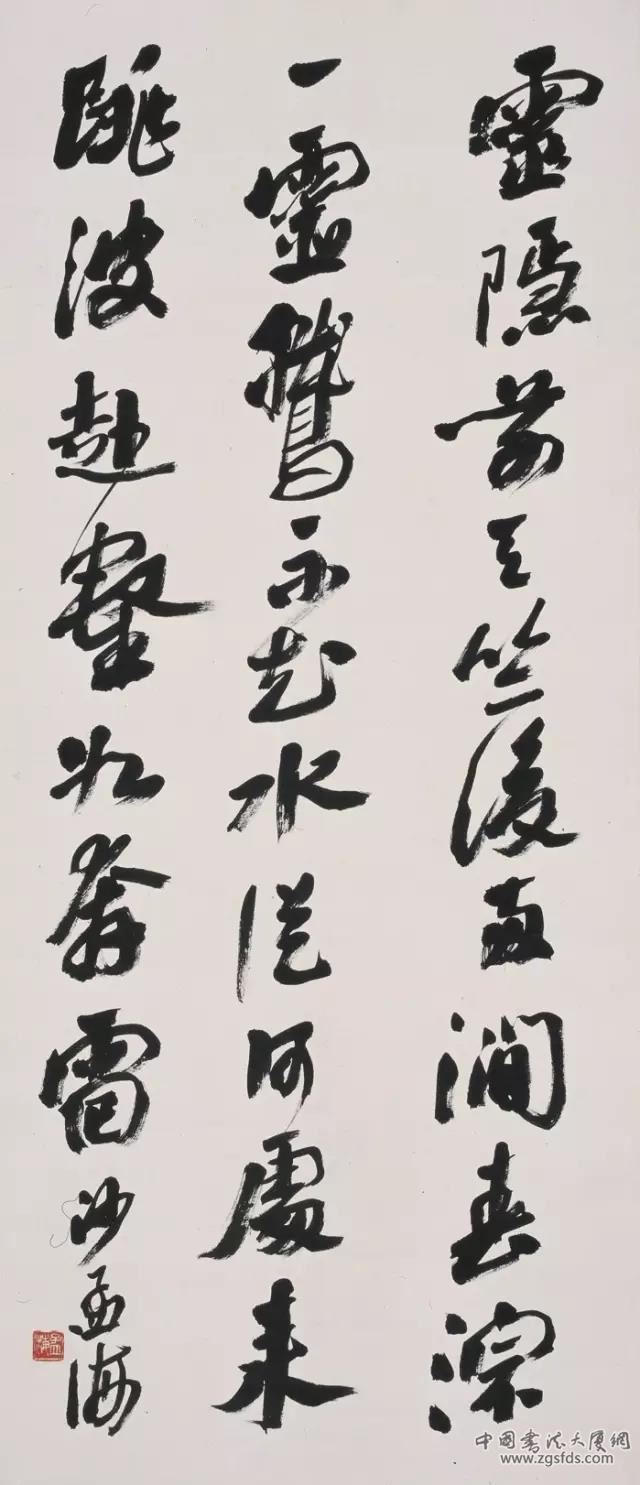 靈隱前天竺後兩澗春淙
一靈鷲不知水從何處來
跳波赴壑如奔雷沙孟海
孟海
中國書法大廈網
www.zgsfds.com